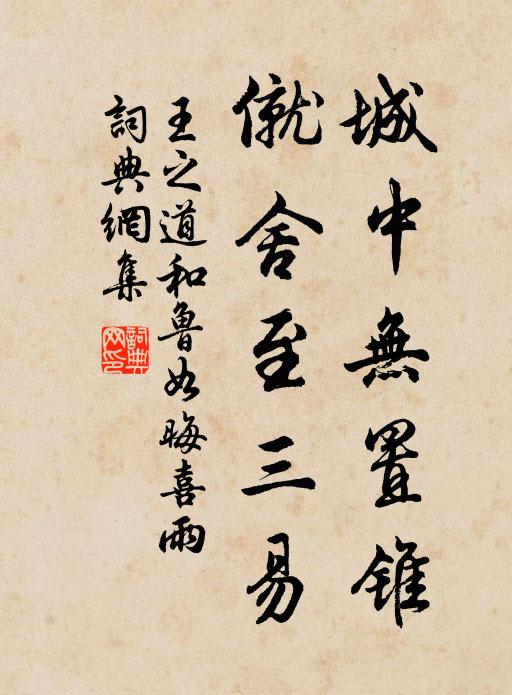 城中無置錐
僦舍至三易
王之道和魯如晦喜雨
詞典網集
詞典網印